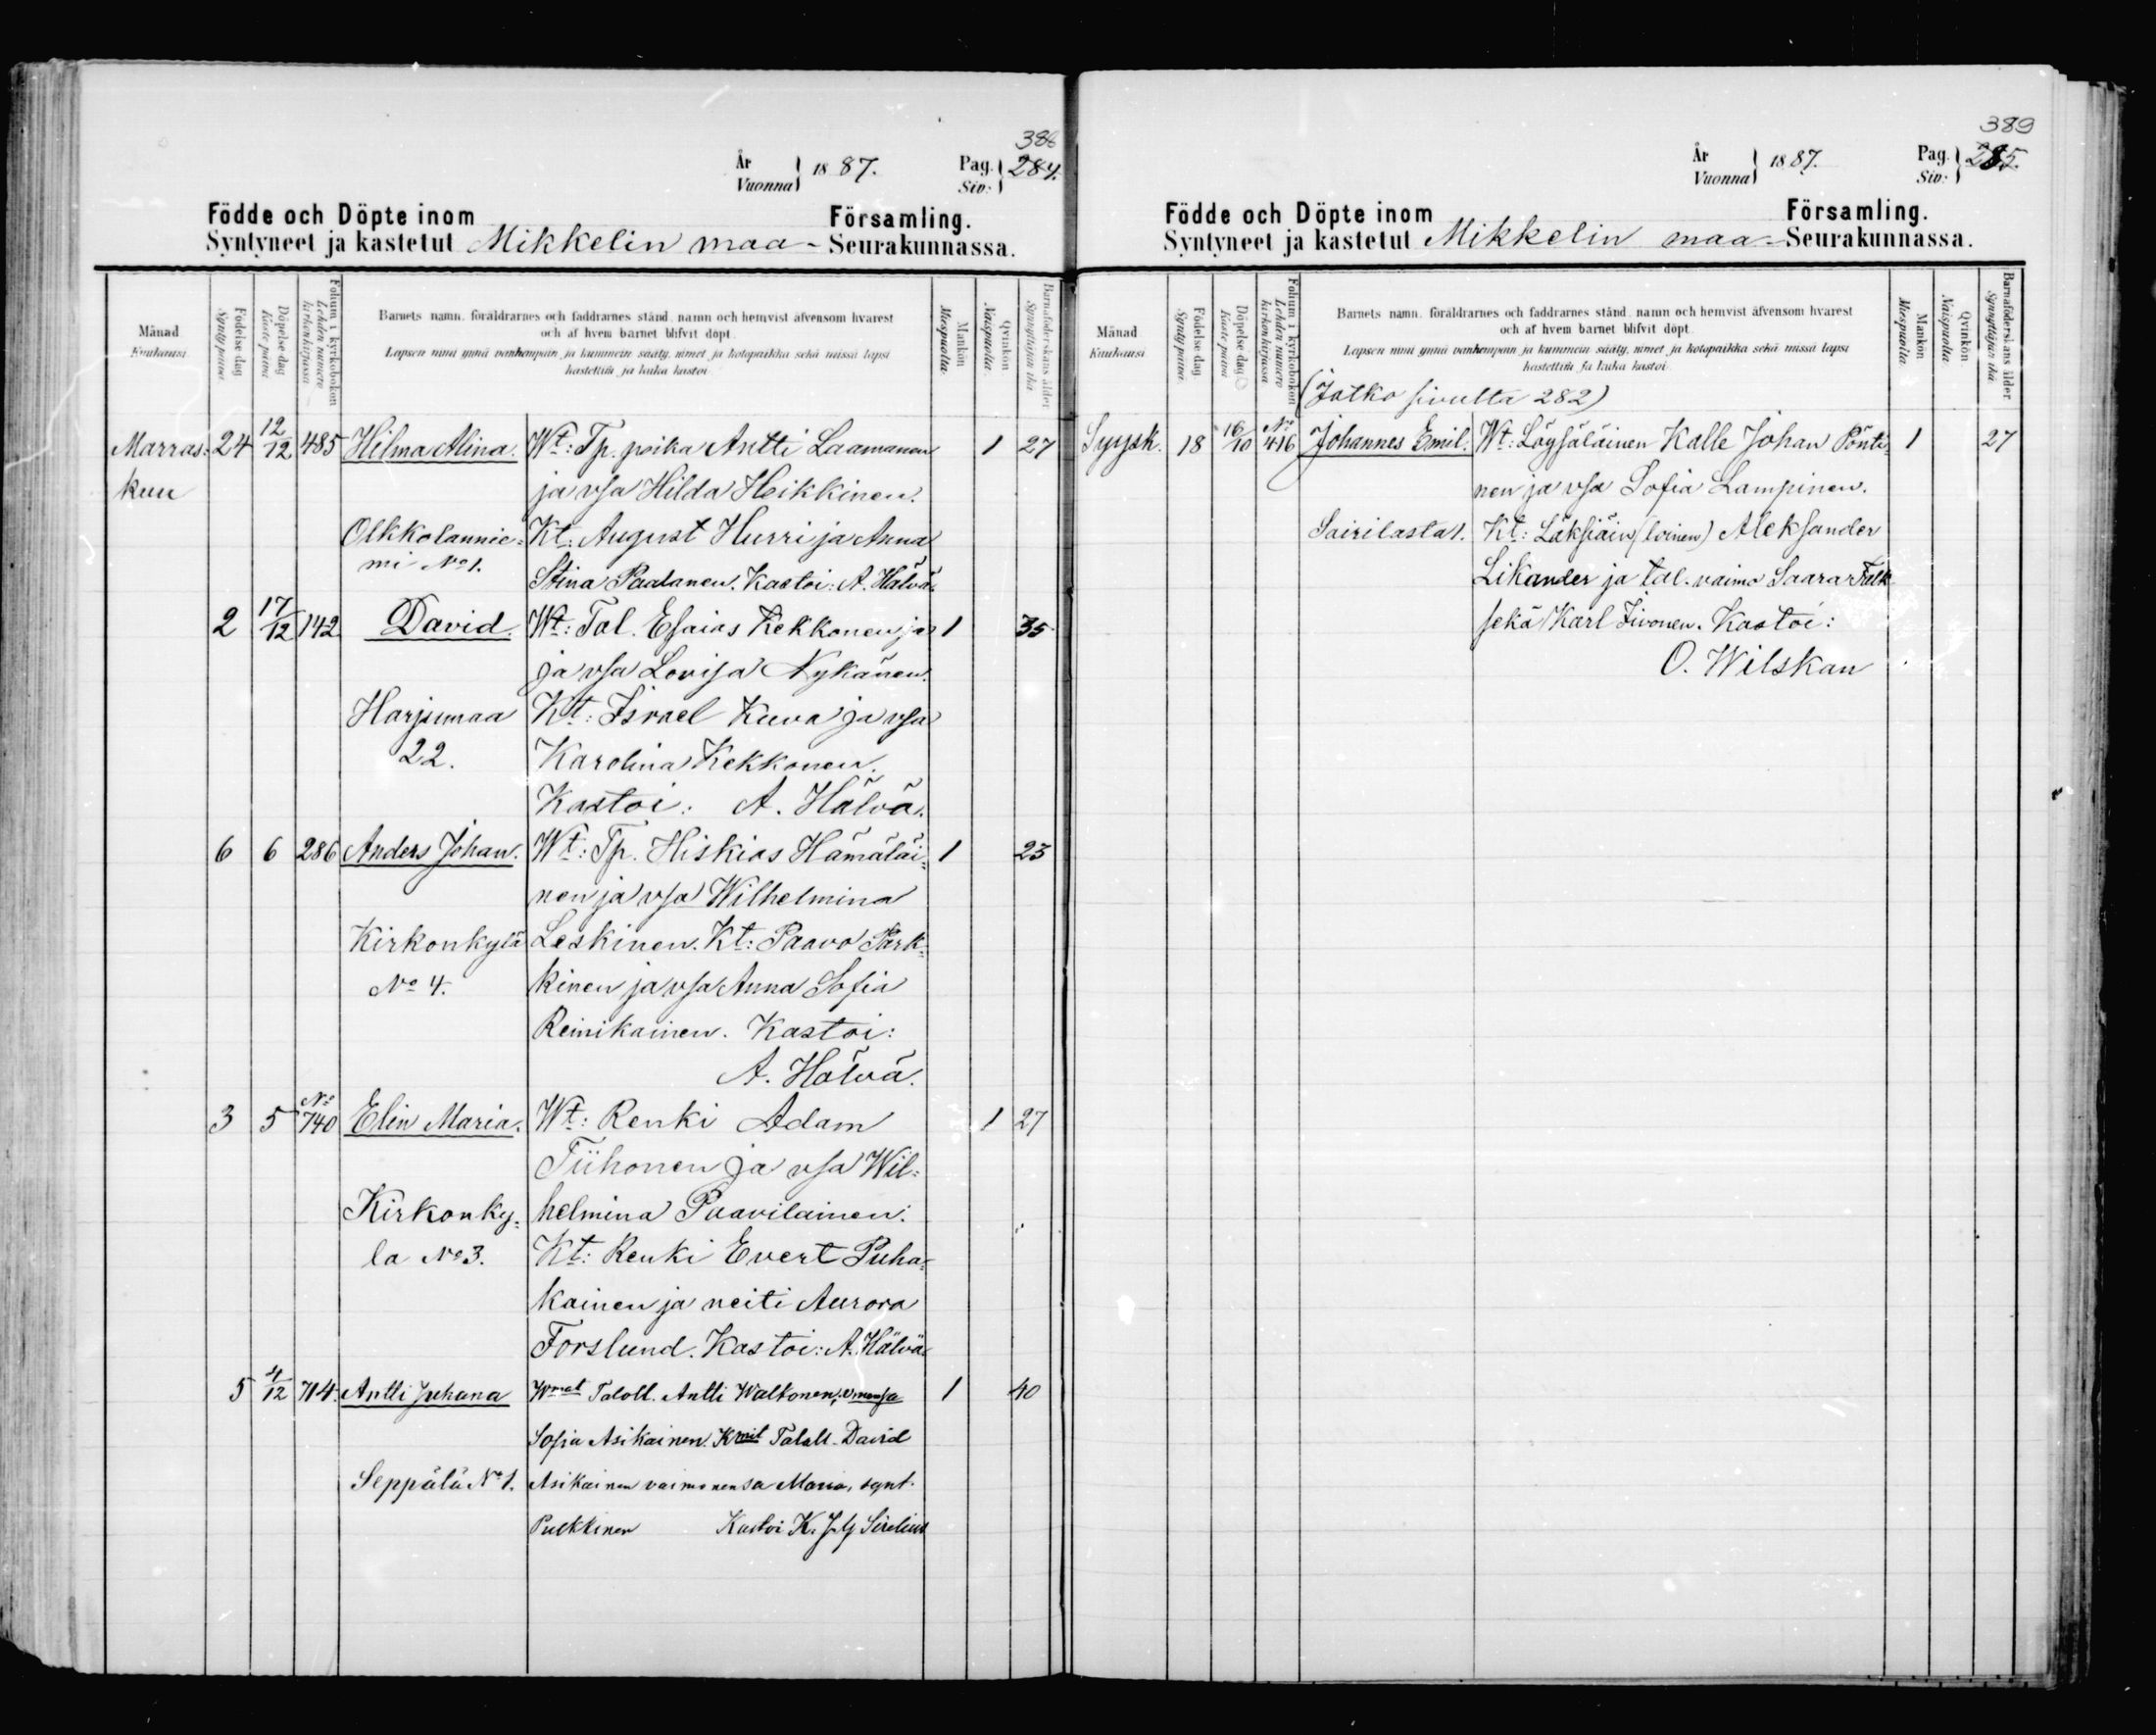 388
År Vuonna 1887. Pag. Siv: 284.
Födde och Döpte inom Församling.
Syntyneet ja kastetut Mikkelin maa- Seurakunnassa.
Månad Kuukausi
Födelse dag Synty päivä
Döpelse dag Kaste päivä
Folium i kyrkoboken Lehden numero kirkonkirjassa
Barnets namn, föräldrarnes och faddrarnes stånd, namn och hemvist äfvensom hvarest
och af hvem barnet blifvit döpt
Lapsen nimi ynnä vanhempain ja kummein sääty, nimet ja kotopaikka sekä missä lapsi
kastettiin ja kuka kastoi
Mankön Miespuolta
Qvinkön Naispuolta
Barnaföderskans ålder Synnyttäjän ikä
Marras- 24 12/12 485 Hilma Alina. Wt: Tp. poika Antti Laamanen 1 27
kuu ja vsa Hilda Heikkinen.
Olkkolannie- Kt: August Hurri ja Anna
mi No 1. Stina Paalanen. Kastoi: A. Hälvä.
2 17/12 142 David. Wt: Tal. Esaias Kekkonen ja 1 35
ja vsa Lovisa Nykänen.
Harjumaa Kt: Israel Kuva ja vsa
22. Karolina Kekkonen.
Kastoi: A. Hälvä.
6 6 286 Anders Johan. Wt: Tp. Hiskias Hämäläi- 1 23
nen ja vsa Wilhelmina
Kirkonkylä Leskinen. Kt: Paavo Park-
No 4. kinen ja vsa Anna Sofia
Reinikainen. Kastoi:
A. Hälvä.
3 5 No 740 Elin Maria. Wt: Renki Adam 1 27
Tiihonen ja vsa Wil-
Kirkonky- helmina Paavilainen.
la No 3. Kt: Renki Evert Puha-
kainen ja neiti Aurora
Forslund. Kastoi: A. Hälvä.
5 4/12 714. Antti Juhana Wmat Taloll. Antti Waltonen, vmonsa 1 40
Sofia Asikainen. Kmit Taloll. David
Seppälä No 1. Asikainen vaimonensa Maria, synt.
Pulkkinen Kastoi K. J. G Sirelius
389
År Vuonna 1887. Pag. Siv: 285.
Födde och Döpte inom Församling.
Syntyneet ja kastetut Mikkelin maa- Seurakunnassa.
Månad Kuukausi
Födelse dag Synty päivä
Döpelse dag Kaste päivä
Folium i kyrkoboken Lehden numero kirkonkirjassa
Barnets namn, föräldrarnes och faddrarnes stånd, namn och hemvist äfvensom hvarest
och af hvem barnet blifvit döpt
Lapsen nimi ynnä vanhempain ja kummein sääty, nimet ja kotopaikka sekä missä lapsi
kastettiin ja kuka kastoi
Mankön Miespuolta
Qvinkön Naispuolta
Barnaföderskans ålder Synnyttäjän ikä
(Jatko sivulta 282)
Syysk. 18 16/10 No 416 Johannes Emil. Wt: Löysäläinen Kalle Johan Pönti- 1 27
nen ja vsa Sofia Lampinen.
Sairilasta 1. Kt: Läksiäin (loinen) Aleksander
Likander ja tal. vaimo Saara
sekä Karl Iivonen. Kastoi:
O. Wilskan